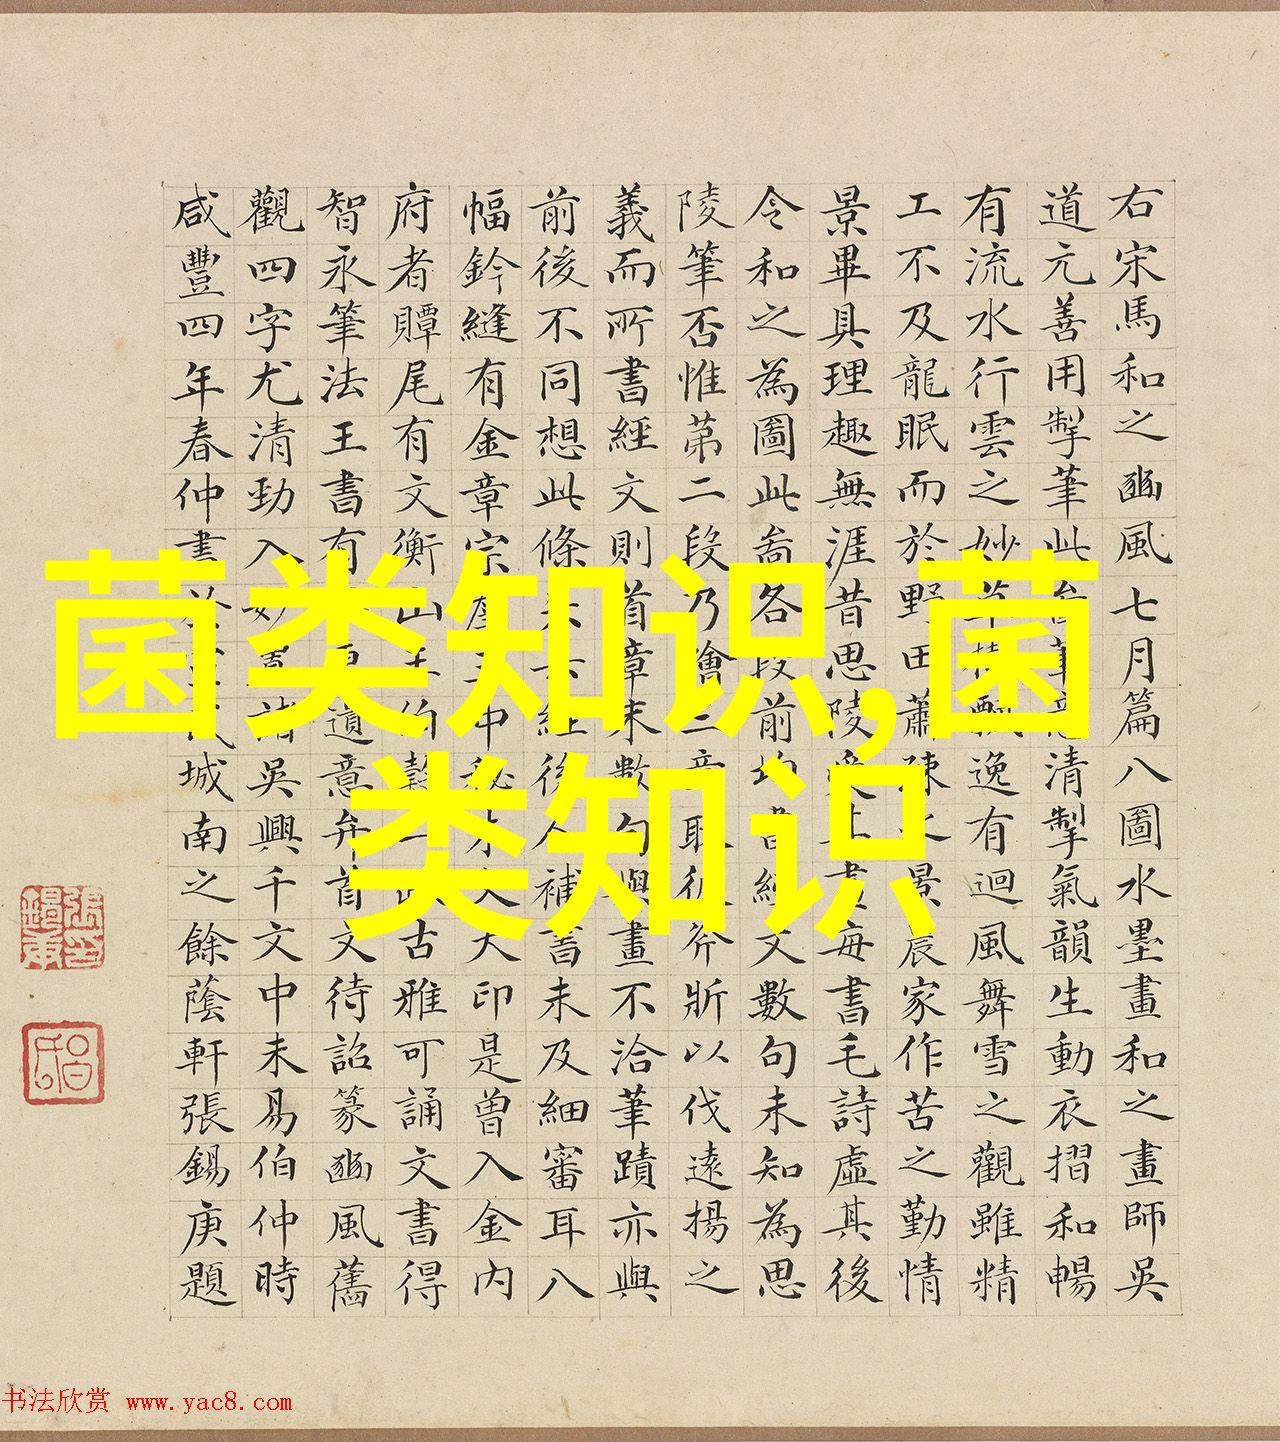 右宋馬和之豳風七月篇八圖水墨畫和之畫師吳
道元善用掣筆此清掣氣韻生動衣摺和暢
有流水行雲之妙逸有迴風舞雪之觀雖精
工不及龍眠而於野田蕭景農家作苦之勤情
景畢具理趣無涯昔思陵畫每書毛詩虛其後
令和之為圖此各段前均書經文數句未知為思
陵筆否惟苐二段乃繪二章取彼斧斨以伐遠揚之
義而所書經文則首章末數句與畫不洽筆蹟亦與
前後不同想此條經後人補書未及細審耳八
幅鈐縫有金章宗中印是曾入金內
府者贉尾有文衡山王伯古雅可誦文書得
智永筆法王書有遒意弁首文待詔篆豳風舊
觀四字尤清勁入妙置諸吳興千文中未易伯仲時
咸豐四年春仲書於城南之餘蔭軒張錫庚題
菌类知识,菌
类知识
书法欣赏 www.yac8.com